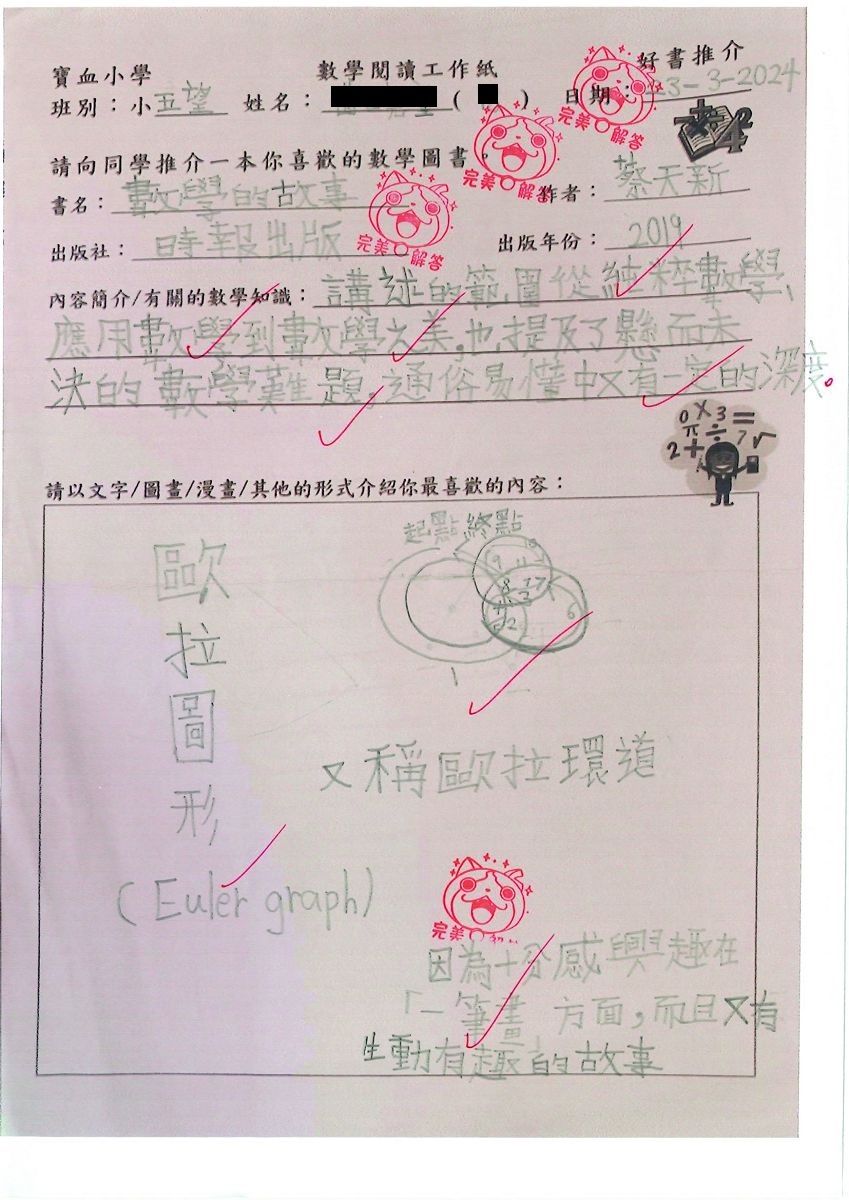 寶血小學 數學閱讀工作紙 好書推介
班別：小五望 姓名： ( ) 日期：3-3-2024
請向同學推介一本你喜歡的數學圖書。
書名：數學的故事 作者：蔡天新
出版社：時報出版 出版年份：2019
內容簡介/有關的數學知識：講述的範圍從純粹數學、
應用數學到數學之美,也提及了懸而未
決的數學難題,通俗易懂中又有一定的深度。
請以文字/圖畫/漫畫/其他的形式介紹你最喜歡的內容：
起點 終點
歐拉圖形
1
又稱歐拉環道
(Euler graph)
因為十分感興趣在
「一筆畫」方面,而且又有
生動有趣的故事
完美 解答
完美 解答
完美 解答
完美